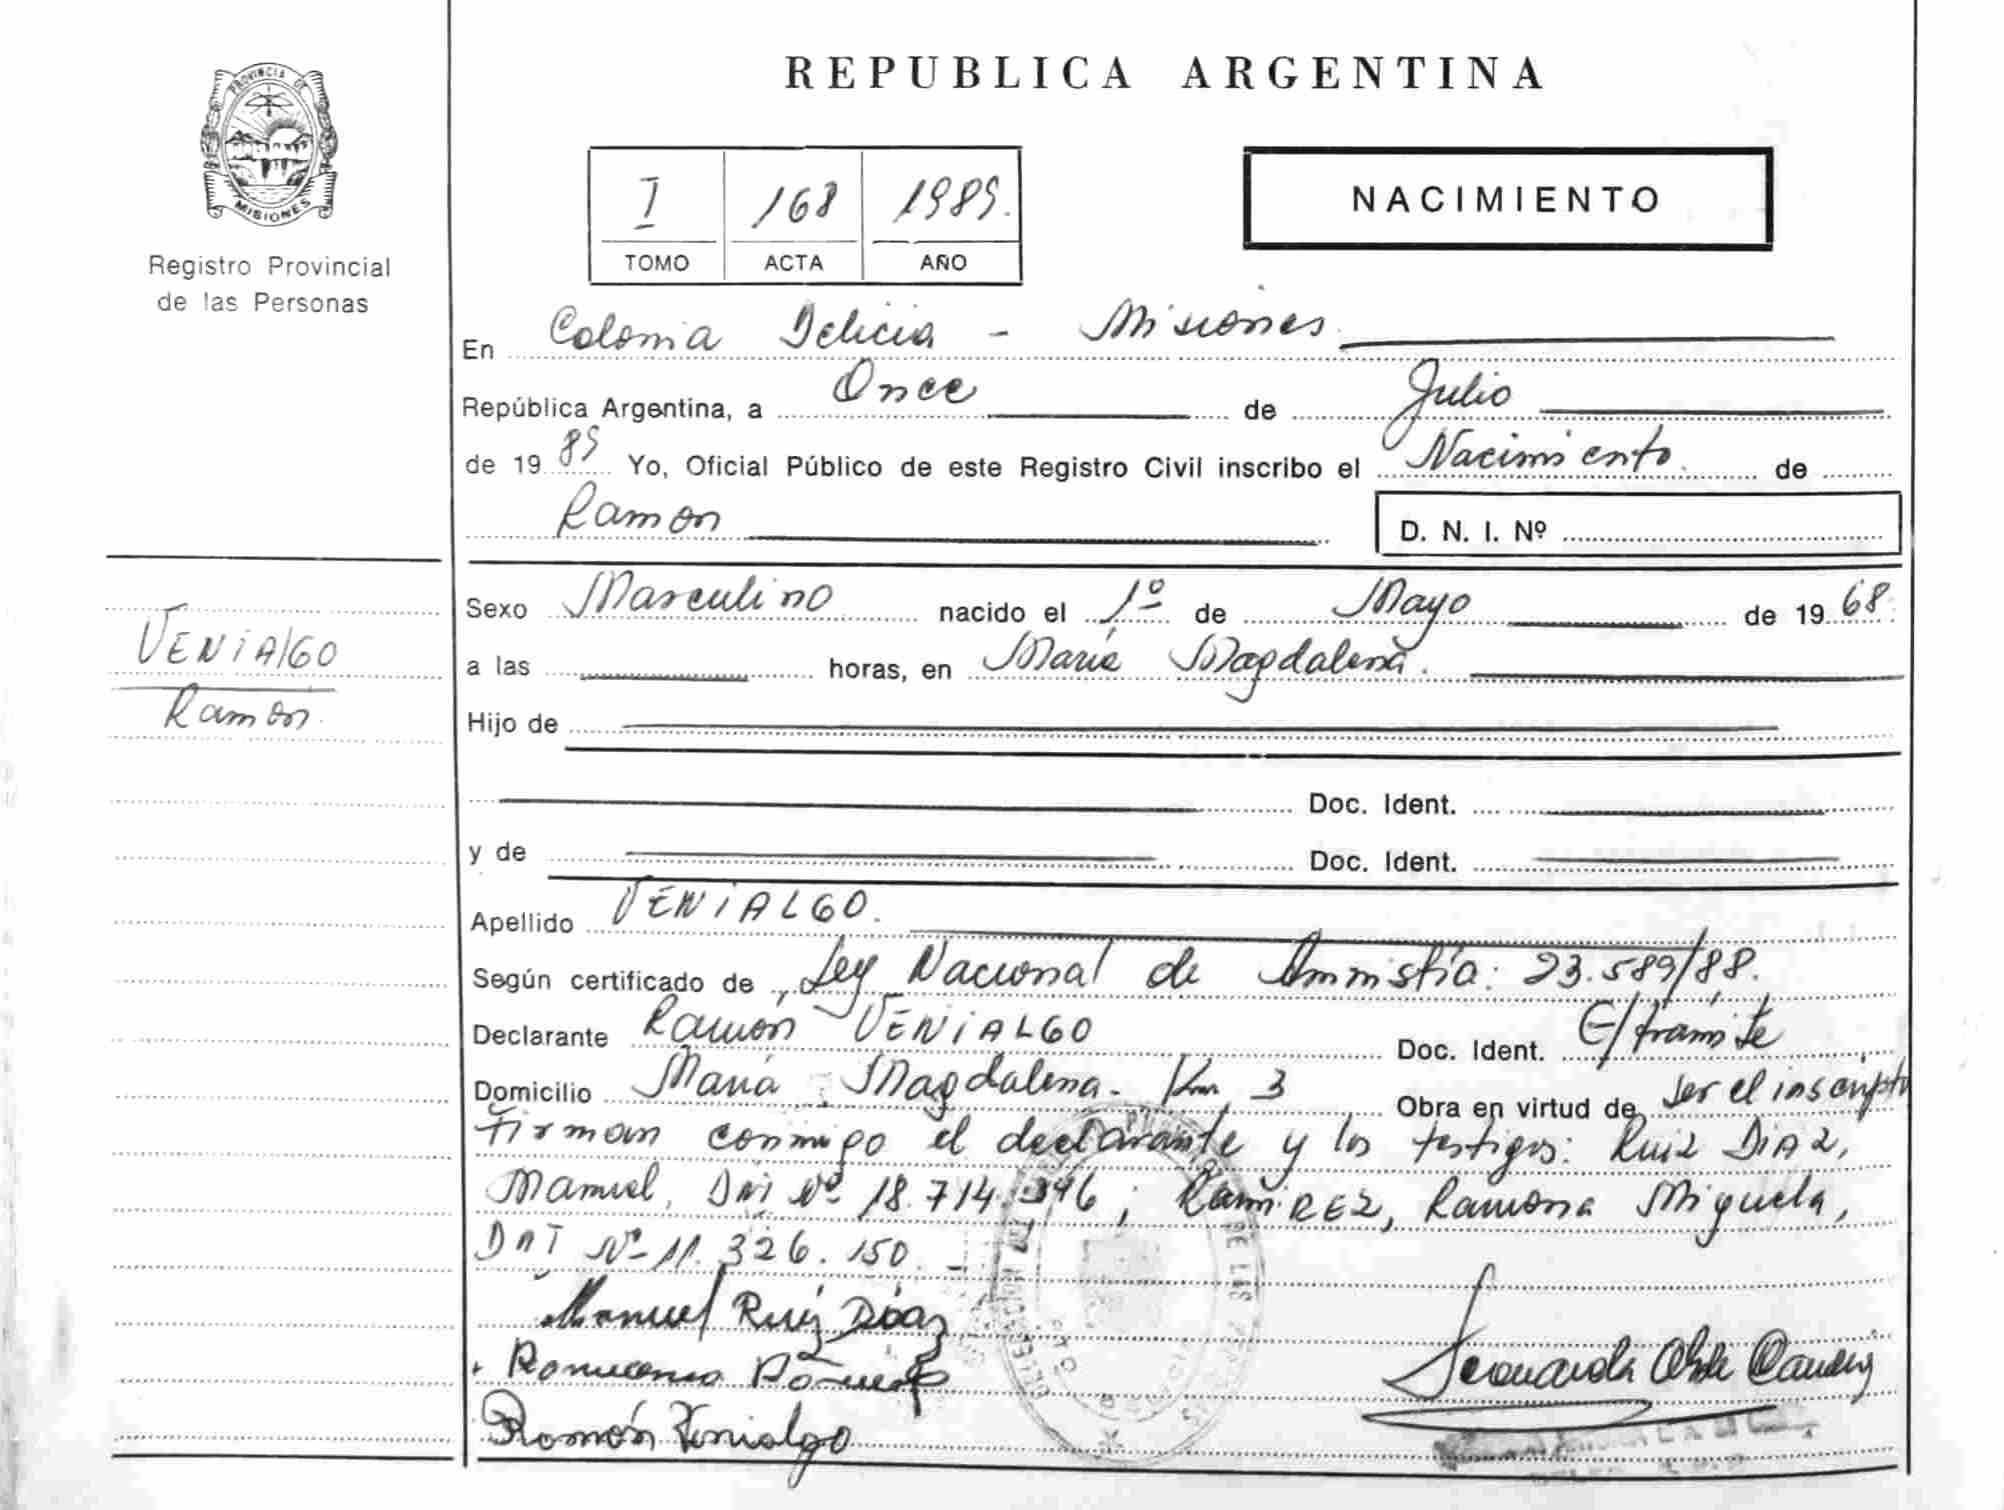 REPUBLICA ARGENTINA
PROVINCIA DE
MISIONES
Registro Provincial
de las Personas
I 168 1989.
TOMO ACTA AÑO
NACIMIENTO
En Colonia Delicia - Misiones
República Argentina, a Once de Julio
de 1989 Yo, Oficial Público de este Registro Civil inscribo el Nacimiento de
Ramon D. N. I. Nº
VENiAlGO
Ramón.
Sexo Masculino nacido el 1º de Mayo de 1968.
a las horas, en María Magdalena.
Hijo de
Doc. Ident.
y de Doc. Ident.
Apellido VENiALGO.
Según certificado de Ley Nacional de Amnistía: 23.589/88.
Declarante Ramón VENiALGO Doc. Ident. E/trámite
Domicilio María Magdalena - Km 3 Obra en virtud de ser el inscripto
Firman conmigo el declarante y los testigos: Ruiz DiAz,
Manuel, DNi Nº 18.714.346; RamiREZ, Ramona Miguela,
DNI Nº 11.326.150. -
Manuel Ruiz Díaz
Ramón Venialgo